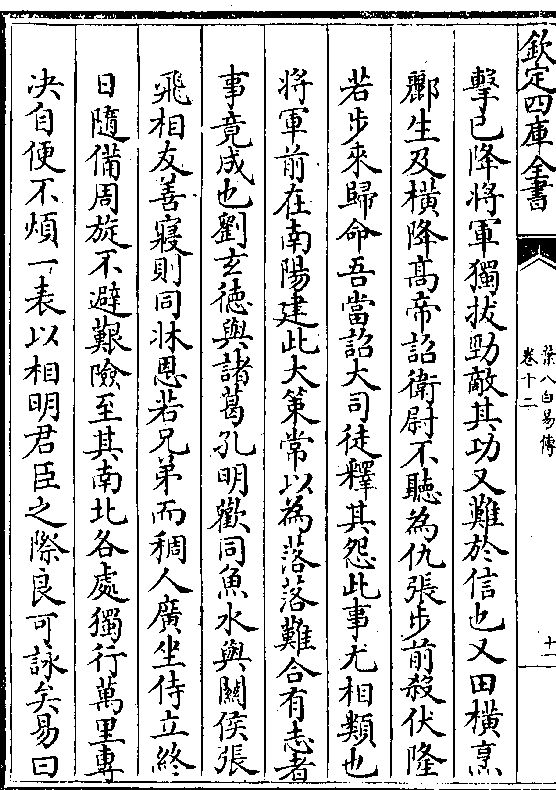 欽定四庫全書
葉八白易傳
卷十二
十一
擊已降將軍獨拔勁敵其功又難於信也又田橫烹
酈生及橫降髙帝詔衛尉不聽為仇張步前殺伏隆
若步來歸命吾當詔大司徒釋其怨此事尤相類也
將軍前在南陽建此大策常以為落落難合有志者
事竟成也劉玄德與諸葛孔明歡同魚水與關侯張
飛相友善寢則同牀恩若兄弟而稠人廣坐侍立終
日隨備周旋不避艱險至其南北各處獨行萬里專
决自便不煩一表以相明君臣之際良可詠矣易曰